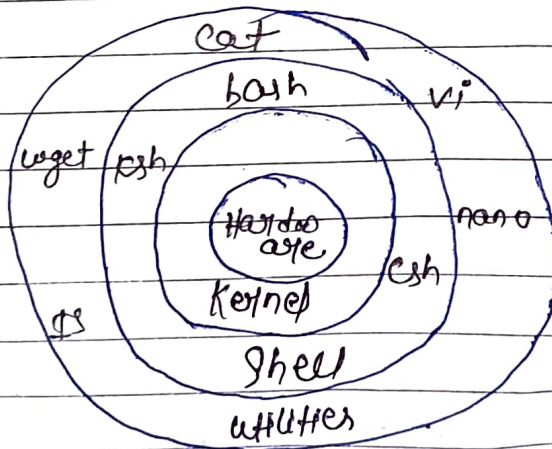 cat
bash
vi
wget
ksh
Hardw
are
nano
csh
Kernel
Shell
utilities